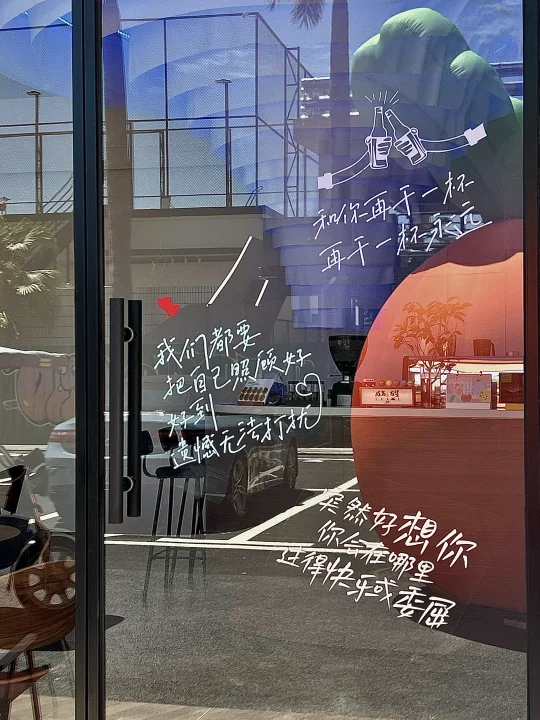 和你再干一杯
再干一杯永远
我们都要
把自己照顾好
好到
遗憾无法打扰
突然好想你
你会在哪里
过得快乐或委屈